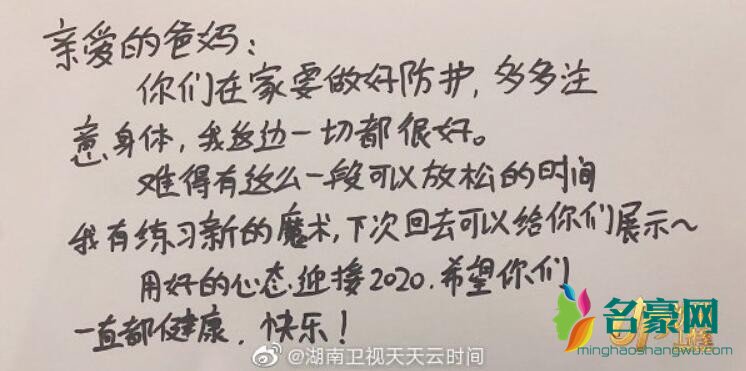 亲爱的爸妈:
你们在家要做好防护,多多注
意身体,我这边一切都很好。
难得有这么一段可以放松的时间
我有练习新的魔术,下次回去可以给你们展示~
用好的心态迎接2020.希望你们
一直都健康.快乐!
@湖南卫视天天云时间
名豪网
minghaoshangwu.com